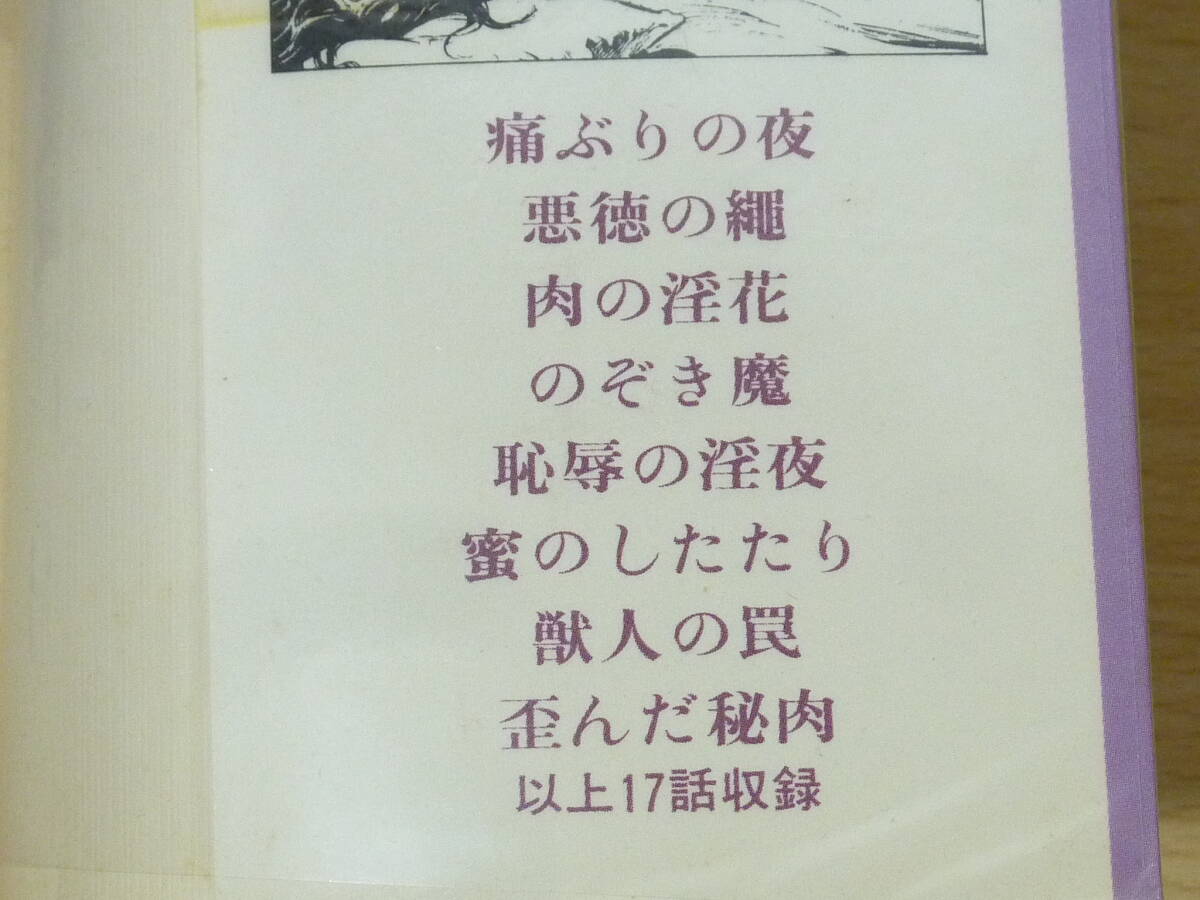 痛ぶりの夜
悪徳の繩
肉の淫花
のぞき魔
恥辱の淫夜
蜜のしたたり
獣人の罠
歪んだ秘肉
以上17話収録